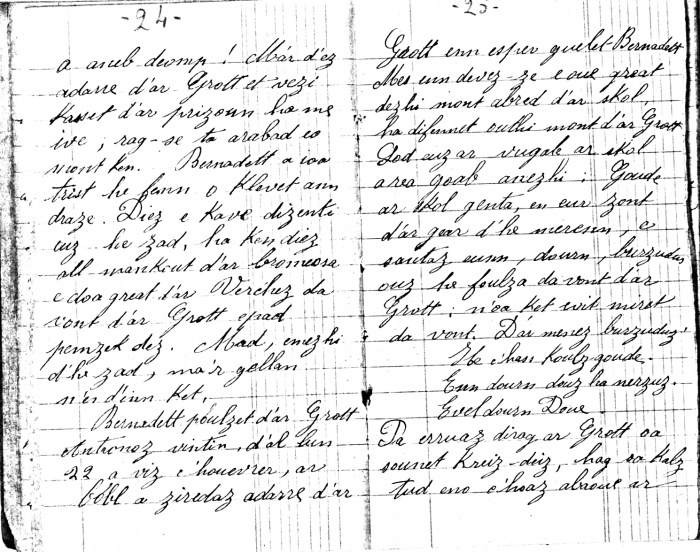 -24-
a aneb deomp ! Mar d'ez
adarre d'ar Grott et vezi
Kasset d'ar prizoun ha me
ive ; rag-se ta arabad eo
mont ken. Bernadett a ioa
trist he fenn o Klevet ann
draze. Diez e Kave dizenti
ouz he zad, ha ken diez
all mankout d'ar bromessa
e doa great d'ar Verc'hez da
vont d'ar Grott epad
pemzek dez. Mad, emezhi
d'he zad, ma'r gellan
n'ez d'inn Ket.
Bernedett poulzet d'ar Grott
Antronoz vintin, d'al lun
22 a viz c'houevrer, ar
bobl a ziredaz adarre d'ar
-25-
Grott enn esper guelet Bernadett
Mes enn devez-ze e oue great
dezhi mont abred d'ar skol
ha difennet outhi mont d'ar Grott
God ar vugale ar skol
a rea goab anezhi : Goude
ar skol genta, en eur zont
d'ar gear d'he merenn, e
santaz eunn dourn burzudus
ouz he foulza da vont d'ar
Grott ; n'oa ket evit miret
da vont. D'ar menez burzuduz,
He c'hass Koulzgoude.
Eun dourn douz ha nerzuz.
Evel dourn Doue
Pa erruaz dirag ar Grott oa
sounet Kreiz-deiz, hag oa Kalz
tud eno c'hoaz abaoue ar